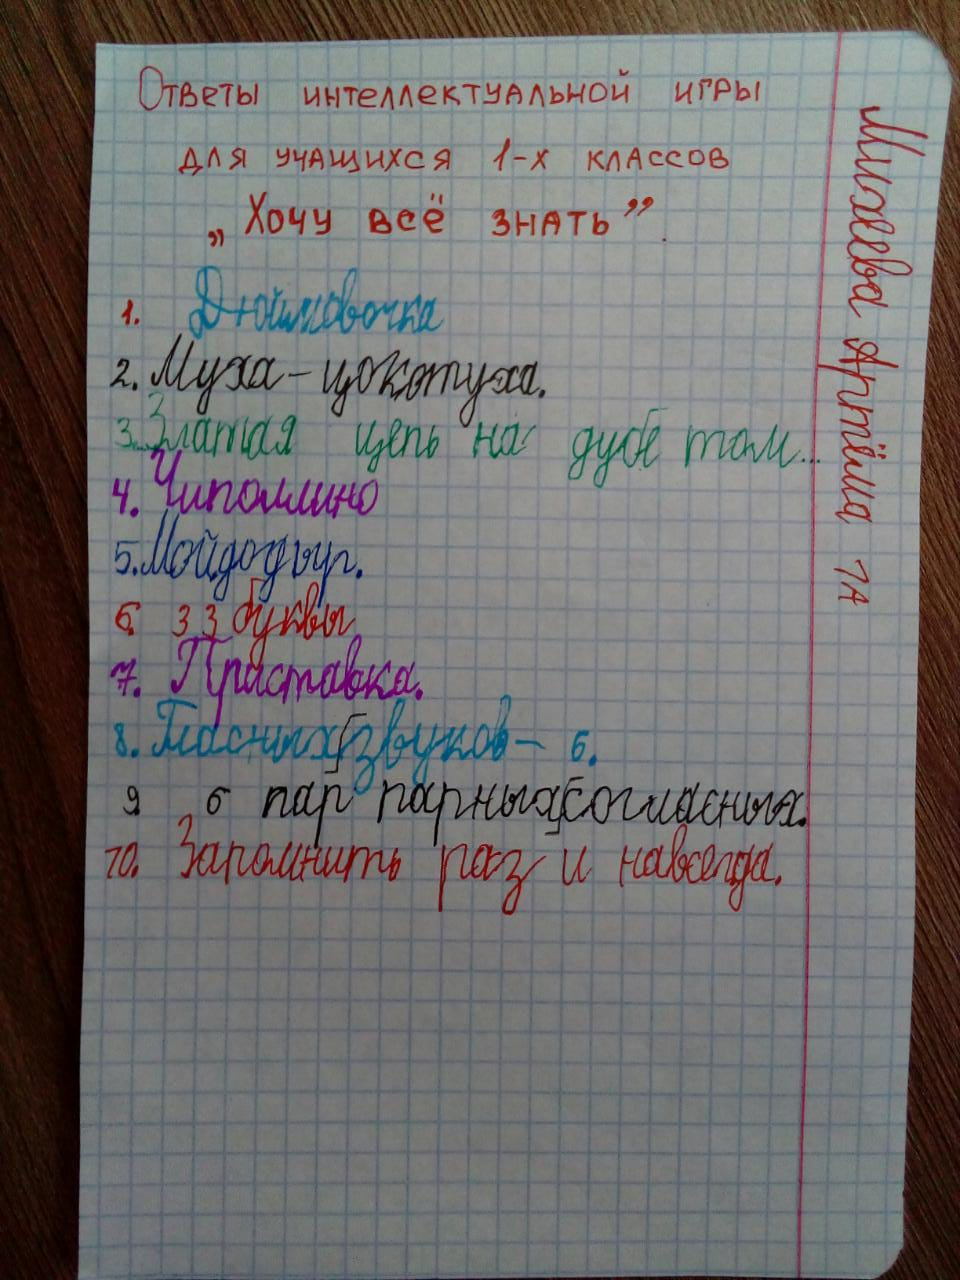 Ответы интеллектуальной игры
для учащихся 1-х классов
„Хочу всё знать”.
1. Дюймовочка
2. Муха-цокотуха.
3. Златая цепь на дубе том...
4. Чиполлино
5. Мойдодыр.
6 33 буквы
7. Приставка.
8. Гласных звуков - 6.
9 6 пар парных согласных.
10. Запомнить раз и навсегда.
Михеева Артёма 1А